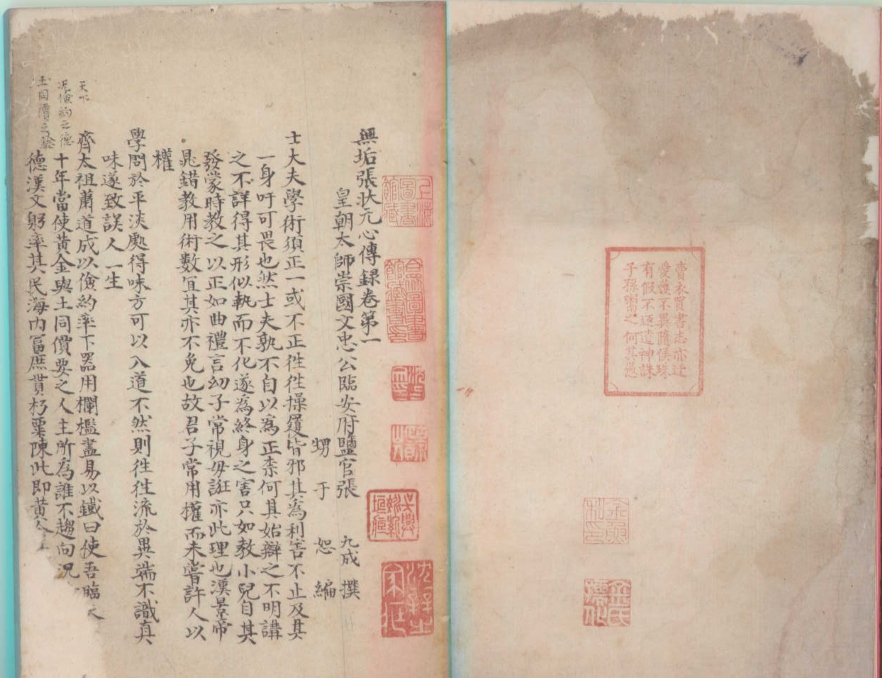 賣衣買書志亦迂
愛護不異隨侯珠
有假不返遭神誅
子孫鬻之何其愚
無垢張狀元心傳録卷第一
皇朝太師崇國文忠公臨安府鹽官張 九成 撰
甥 于 恕 編
士大夫學術須正一或不正徃徃操履皆邪其為利害不止及其
一身吁可畏也然士夫孰不自以為正柰何其始辯之不明講
之不詳得其形似執而不化遂為終身之害只如教小兒自其
發蒙時教之以正如曲禮言幼子常視毋誑亦此理也漢景帝
鼂錯教用術數宜其亦不免也故君子常用權而未嘗許人以
權
學問於平淡處得味方可以入道不然則徃徃流於異端不識真
味遂致誤人一生
齊太祖蕭道成以儉約率下器用欄檻盡易以鐵曰使吾臨天
十年當使黃金與土同價要之人主所為誰不趨向況
德漢文躬率其民海内富庶貫朽粟陳此即黃金
天下
泥儉約之德
土同價之驗
上海圖書館藏
合眾圖書館藏書印